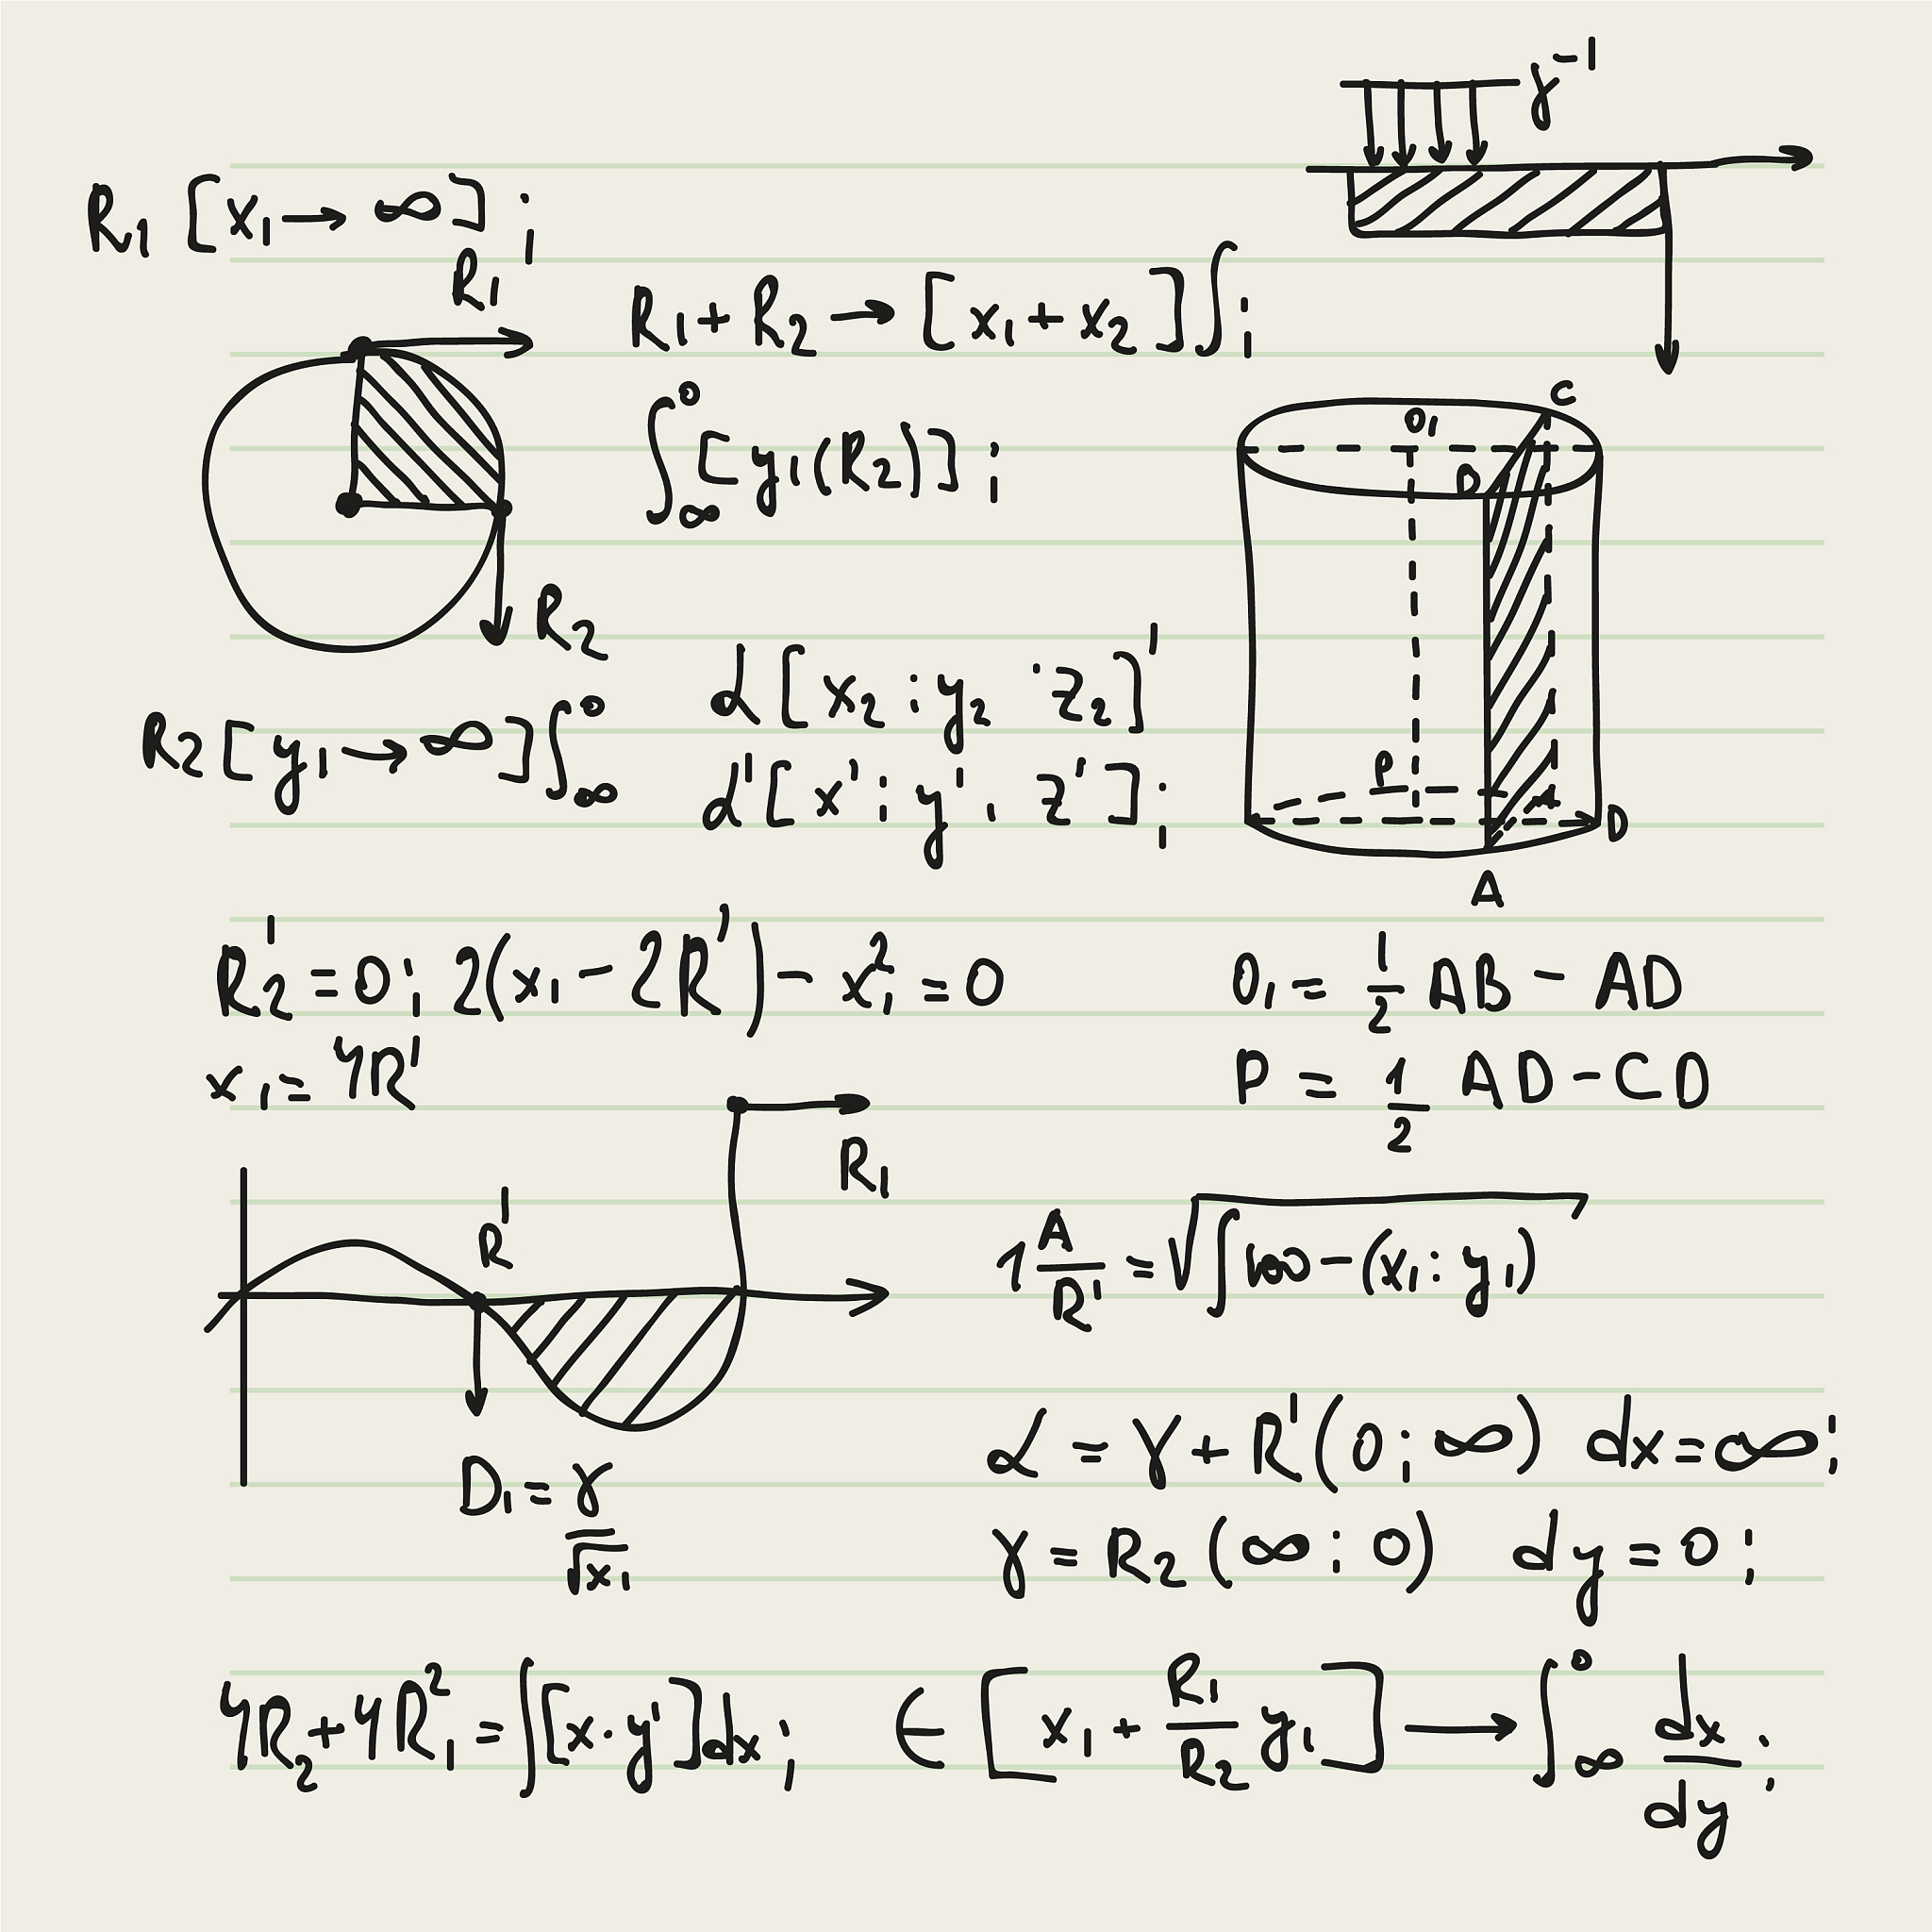 γ⁻¹
R₁ [x₁ → ∞] ;
R₁
R₁ + R₂ → [x₁ + x₂]∫ ;
∫_∞^0 [y₁(R₂)] ;
C
O₁
D
R₂
α[x₂ : y₂ · z₂]'
R₂[y₁ → ∞]∫_∞^0
α'[x' ; y' . z'] ;
P
D
A
R₂' = 0 ; 2(x₁ - 2R') - x₁² = 0
O₁ = 1/2 AB - AD
x₁ = 4R'
P = 1/2 AD - CD
R₁
R'
1 A/R' = √∫ - (x₁ : y₁)
α = γ + R'(0 ; ∞) dx = ∞ ;
D₁ = γ/√x₁
γ = R₂(∞ : 0) dy = 0 ;
4R₂ + 4R₁² = ∫[x · y']dx ; ∈ [x₁ + R₁/R₂ y₁] → ∫_∞^0 dx/dy ;